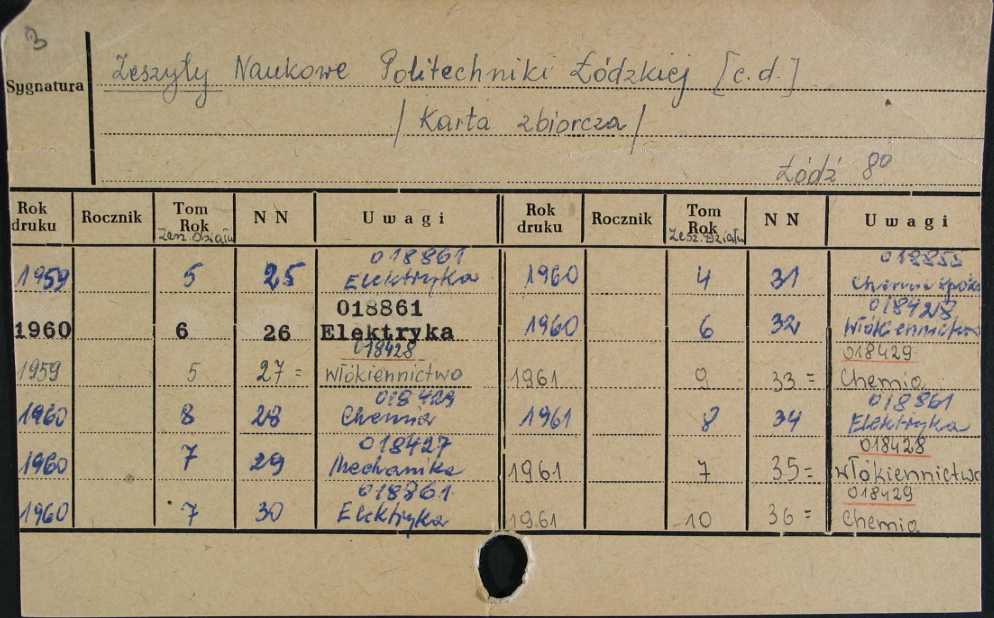 3
Sygnatura
Zeszyty Naukowe Politechniki Łódzkiej [c.d.]
/Karta zbiorcza/
Łódź 8º
Rok druku Rocznik Tom Rok Zesz. Działu N N Uwagi Rok druku Rocznik Tom Rok Zesz. Działu N N Uwagi
1959 5 25 018861 Elektryka 1960 4 31 Chemia
1960 6 26 018861 Elektryka 1960 6 32 018428 Włókiennictwo
1959 5 27= 018428 Włókiennictwo 1961 9 33= 018429 Chemia
1960 8 28 018429 Chemia 1961 8 34 018861 Elektryka
1960 7 29 018427 Mechanika 1961 7 35= 018428 Włókiennictwo
1960 7 30 018861 Elektryka 1961 10 36= 018429 Chemia